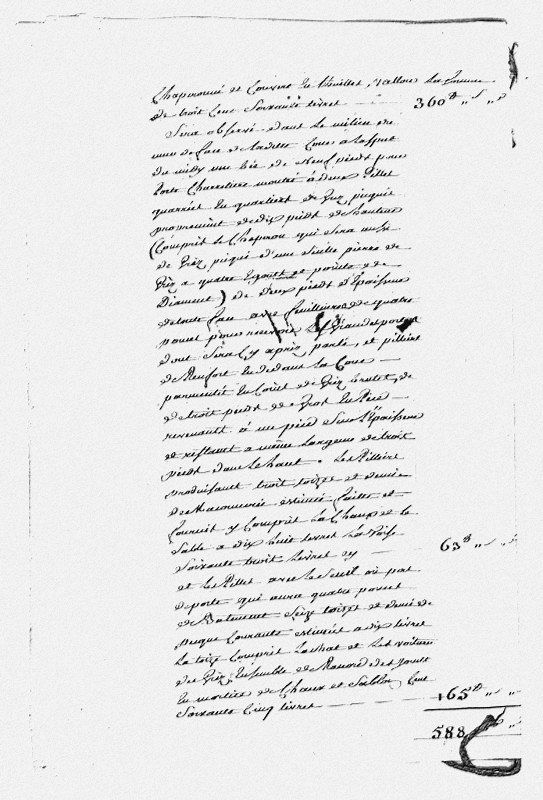 Chaperonné et Couvert en tuillet, Vallou la somme
de troit Cent Soixante livret — 360 tt „ s „ d
Sera observé dans le milieu du
mur de face de laditte Cour a l'aspect
du midy une bée de Neuf piedt pour
Porte Charretiere montée à deux Pillet
quarréet en quartiert de Griz piquée
proprement de dix piedt de hauteur
(Comprit le Chaperon qui sera aussi
de Griz piqué d'une seulle pierre de
Griz a quatre Egoutt et pointe de
Diamant) de deux piedt d'Epaisseur
de toute face avec feuillure de quatre
poucet pour recevoir les grandet portet
dont sera Cy aprèz parlé, et pilliert
de Renfort en dedans la Cour —
parmenté en Coint de Griz brutet, de
de troit piedt de en Pied —
revenantt à un pied sous l'Epaisseur
et restant a même largeur de troit
piedt dans le haut. Let Pilliert
produisant troit toizet et demie
de Maconnerie estimée faitte et
fournie y Comprit la Chaux et le
Sable a dix huit livret la toise
Soixante troit livret cy — 63 tt „ s „ d
et let Pillet avec le Seuil où pat
de porte qui aura quatre poucet
de Batement Seize toizet et demie de
pouce Courante estimée a dix livret
la toize Comprit l'achat et let voiture
de Griz, Ensemble de let Joint
en mortier de Chaux et Sablon, Cent
Soixante Cinq livret — 165 tt „ s „ d
588 tt „ s „ d